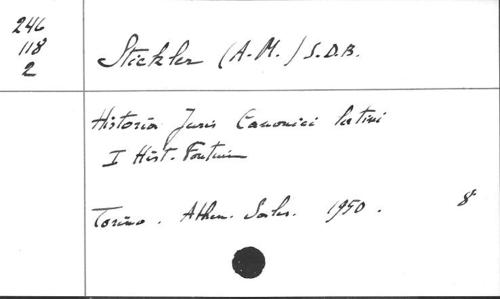 246
118
2
Stickler (A-M.) S.D.B.
Historia Juris Canonici latini
I Hist. Fontium
Torino. Athen. Sales. 1950. 8°